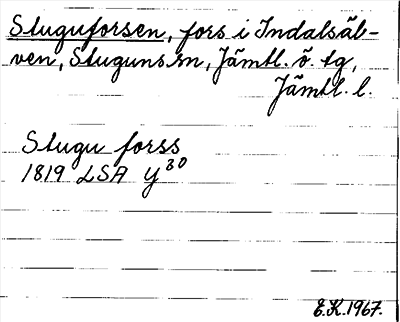 Stuguforsen, fors i Indalsäl-
ven, Stuguns sn, Jämtl. ö. tg,
Jämtl. l.
Stugu forss
1819 LSA Y 30
E.K. 1967.